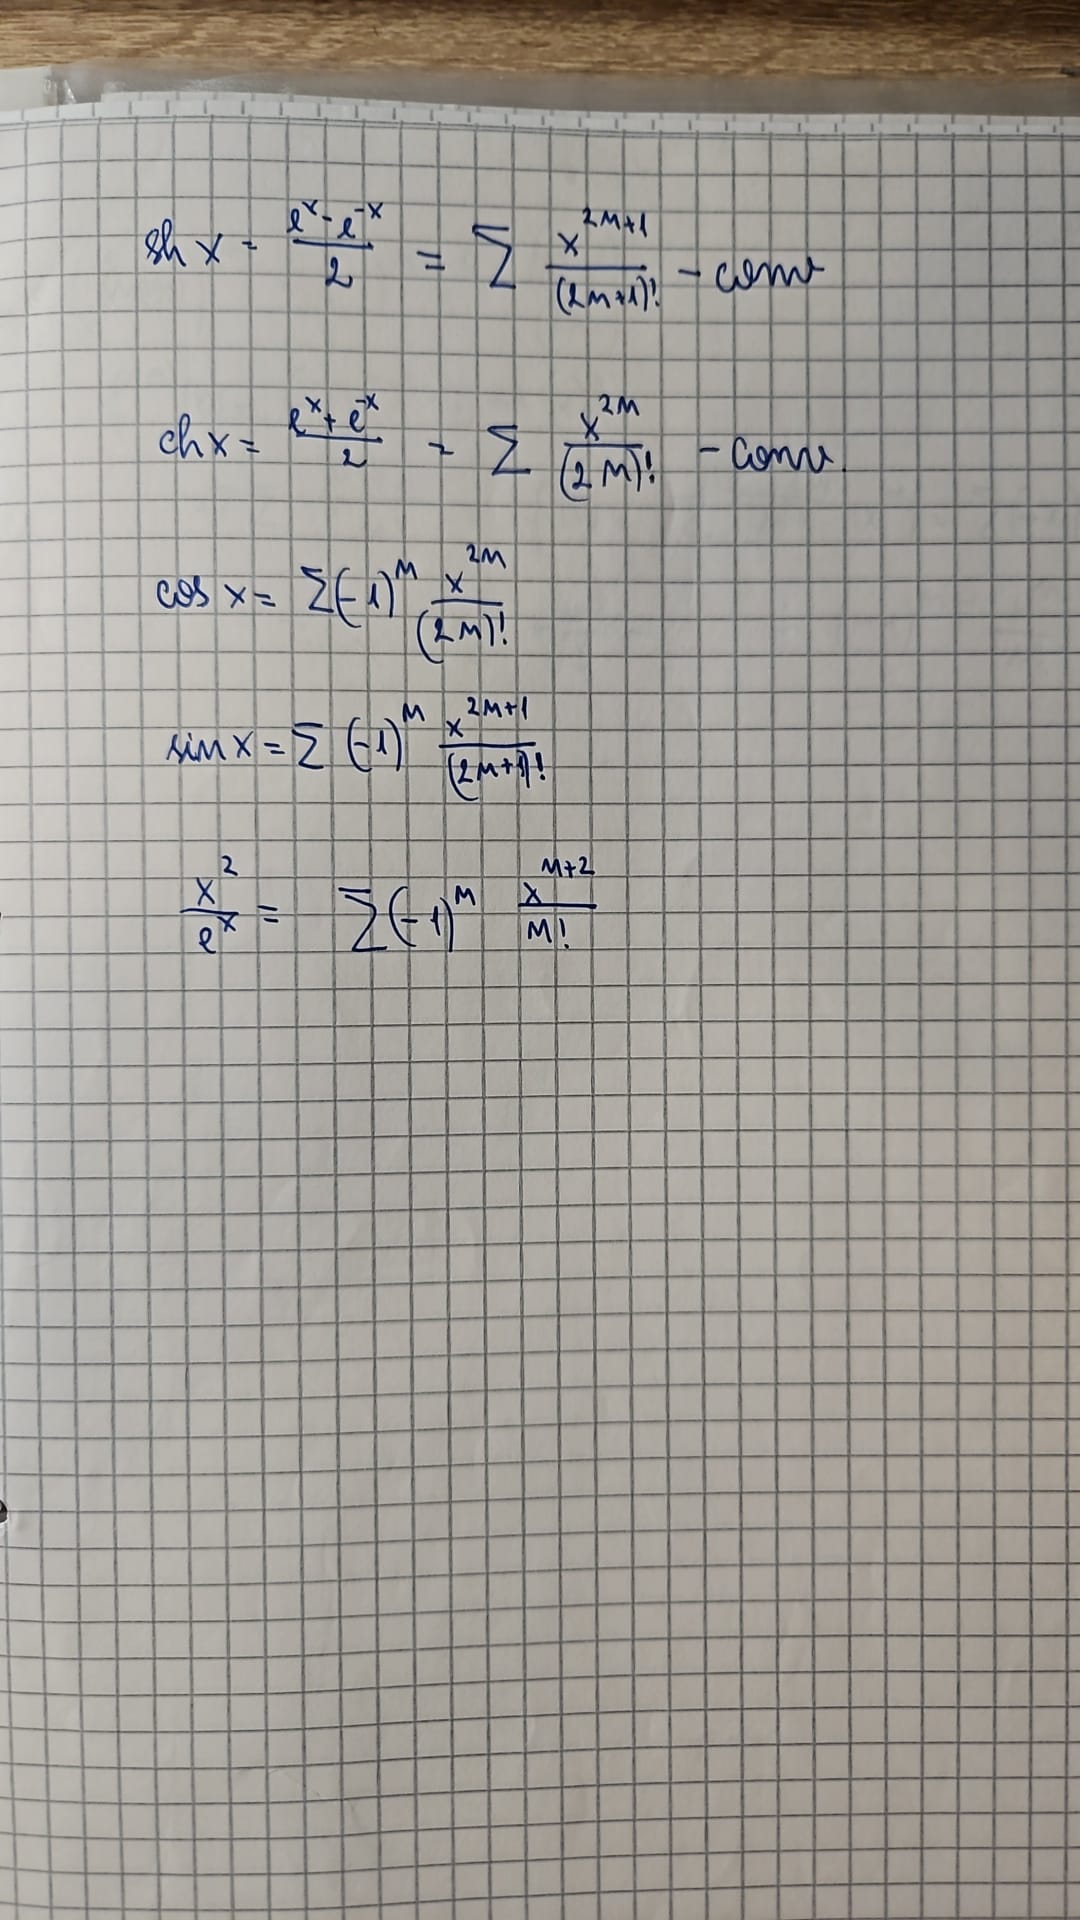 sh x = (e^x - e^-x)/2 = Σ x^(2n+1)/(2n+1)! - conv
ch x = (e^x + e^-x)/2 = Σ x^(2n)/(2n)! - conv.
cos x = Σ(-1)^n x^(2n)/(2n)!
sin x = Σ (-1)^n x^(2n+1)/(2n+1)!
x^2/e^x = Σ(-1)^n x^(n+2)/n!